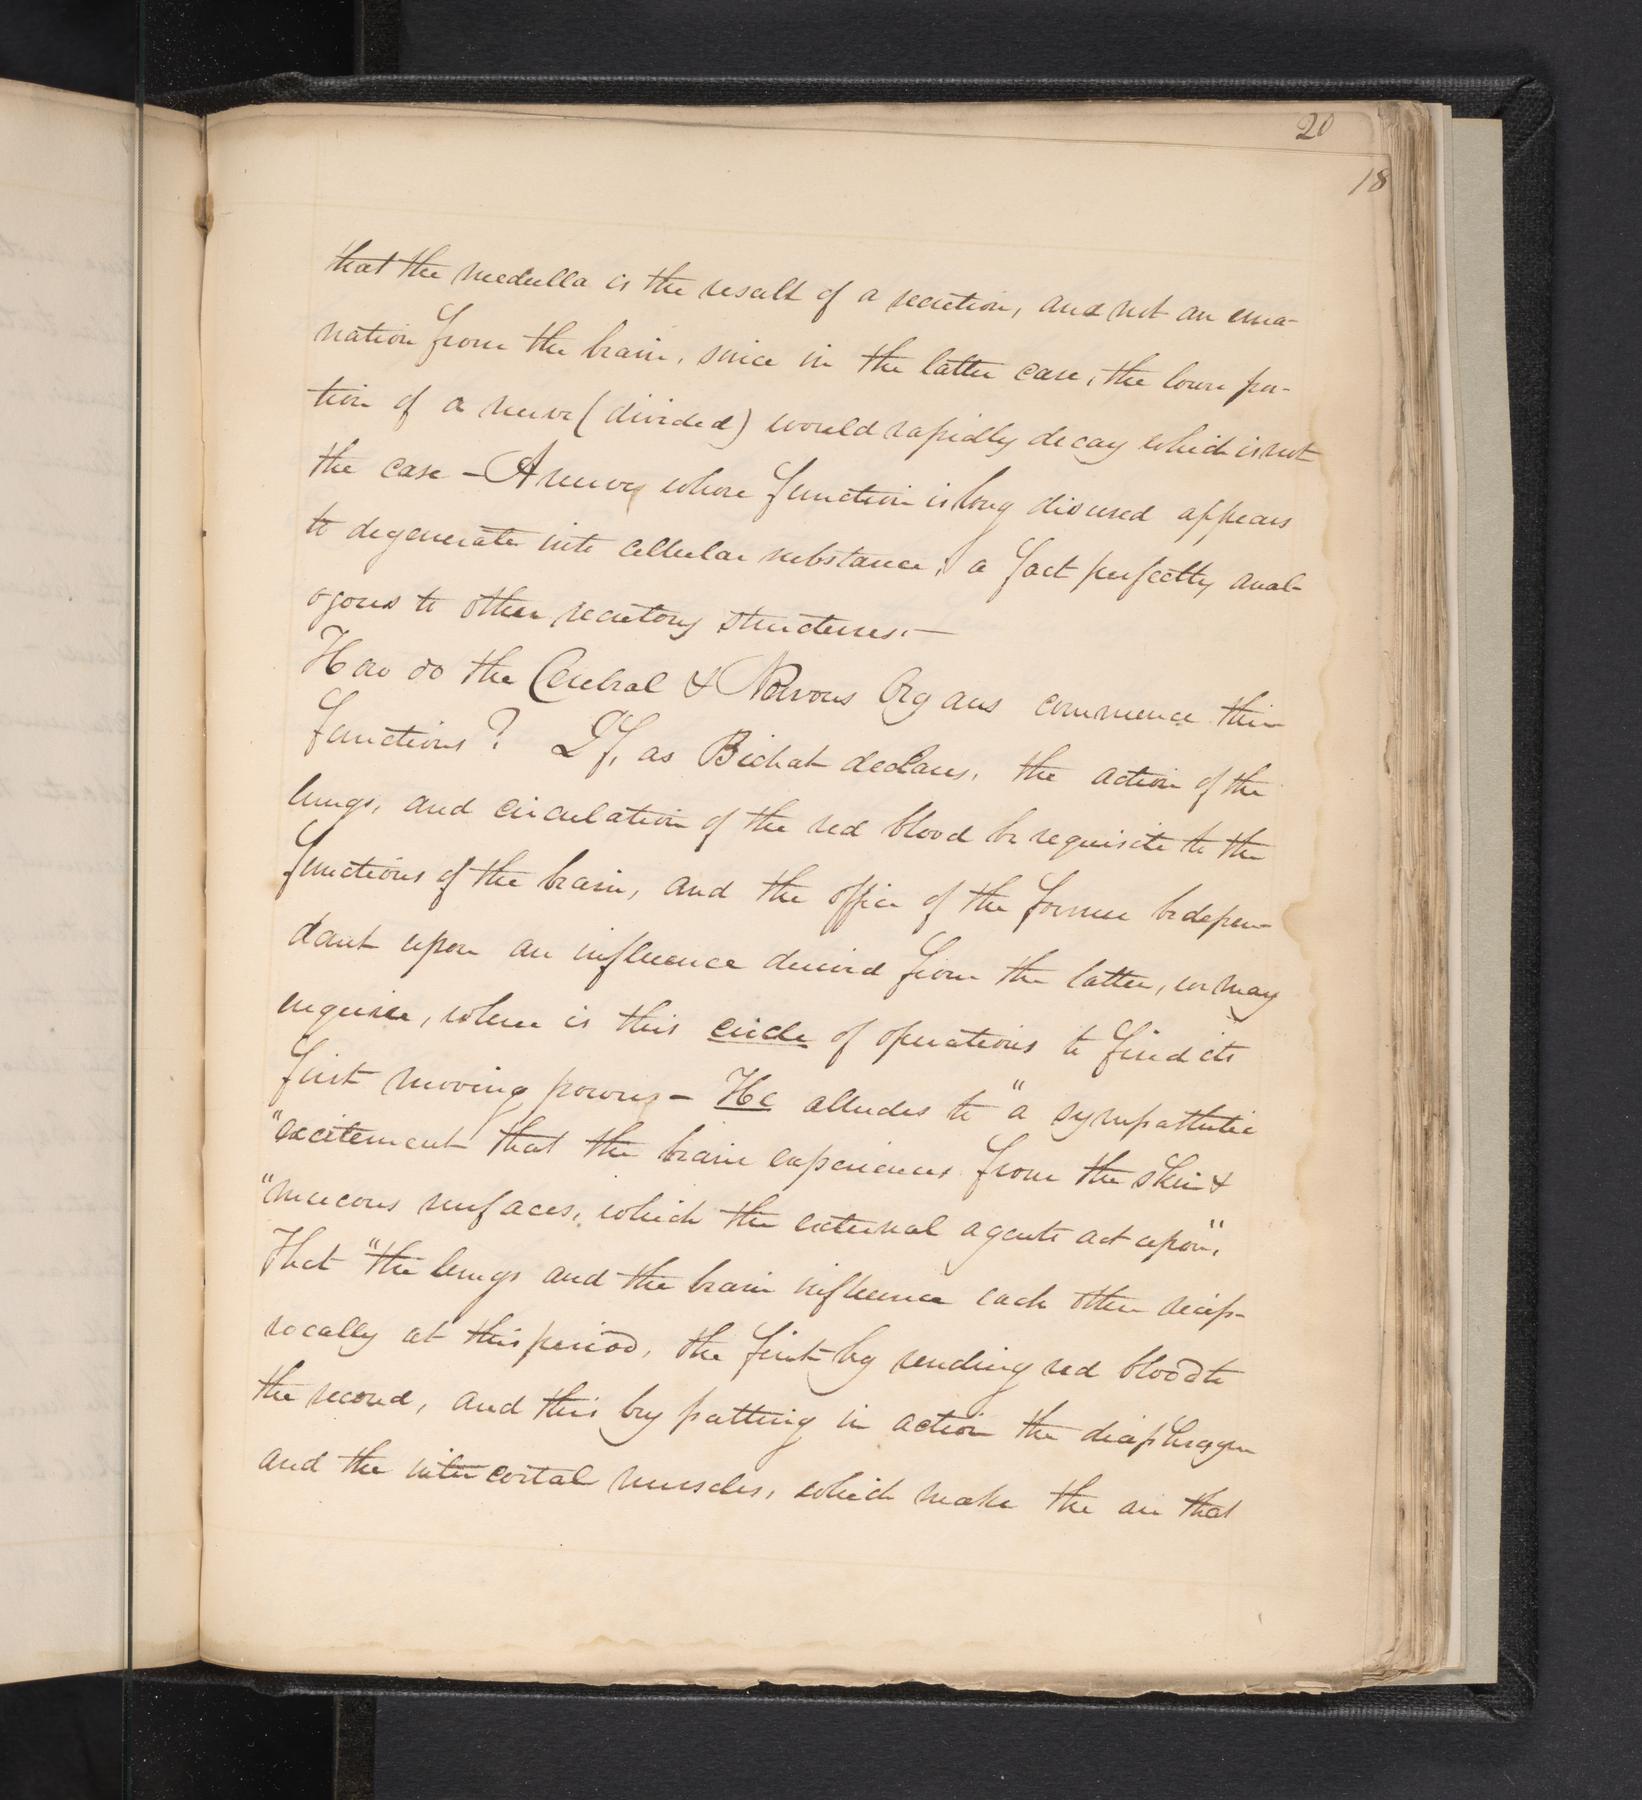 20
18
that the medulla is the result of a secretion, and not an ema-
nation from the brain, since in the latter case, the lower por-
tion of a nerve (divided) would rapidly decay which is not
the case - A nerve, whose function is long disused appears
to degenerate into cellular substance, a fact perfectly anal-
ogous to other secretory structures. -
How do the Cerebral & Nervous Organs commence their
functions? If, as Bichat declares, the action of the
lungs, and circulation of the red blood be requisite to the
functions of the brain, and the office of the former be depen-
dant upon an influence derived from the latter, we may
enquire, where is this circle of operations to find its
first moving powers - He alludes to "a sympathetic
"excitement that the brain experiences from the skin &
"mucous surfaces, which the external agents act upon",
That "the lungs and the brain influence each other recip-
rocally at this period, the first by sending red blood to
the second, and this by putting in action the diaphragm
and the intercostal muscles, which make the air that